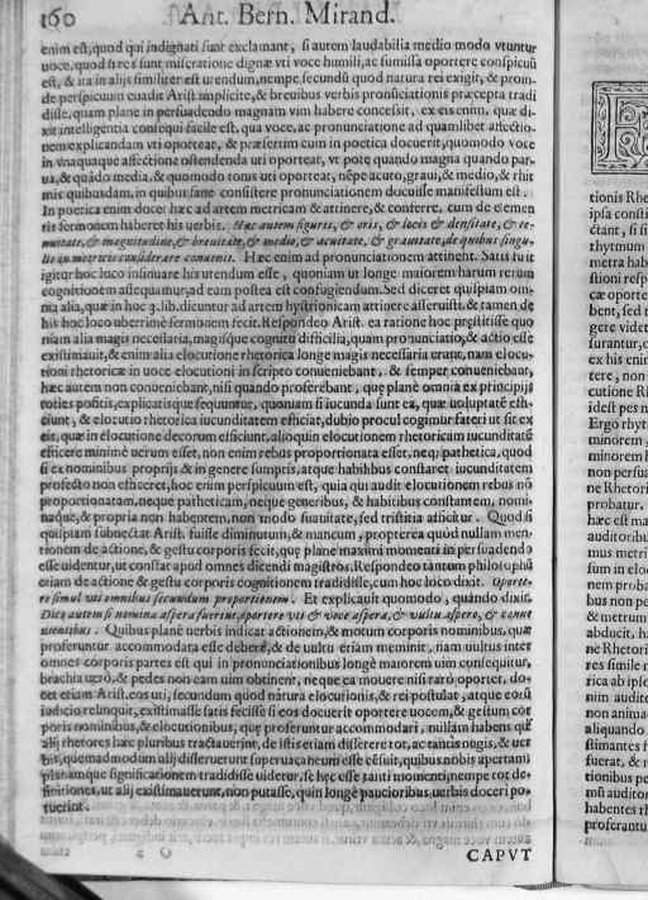 160 Ant. Bern. Mirand.
enim est, quod qui indignati sunt exclamant, si autem laudabilia medio modo vtuntur
uoce, quod si res sunt miseratione dignæ vti voce humili, ac sumissa oportere conspicuũ
est, & ita in alijs similiter est utendum, nempe secundũ quod natura rei exigit, & proin-
de perspicuum euadit Arist. implicite, & breuibus verbis pronũciationis præcepta tradi
disse, quam plane in persuadendo magnam vim habere concessit, ex eis enim, quæ di-
xit intelligentia consequi facile est, qua voce, ac pronunciatione ad quamlibet affectio-
nem explicandam vti oporteat, & præsertim cum in poetica docuerit, quomodo voce
in vnaquaque affectione ostendenda uti oporteat, vt pote quando magna quando par-
ua, & quãdo media, & quomodo tonis uti oporteat, nẽpe acuto, graui, & medio, & rhit
mis quibusdam, in quibus sane consistere pronunciationem docuisse manifestum est.
In poetica enim docet hæc ad artem metricam & attinere, & conferre, cum de elemen
tis sermonem haberet his uerbis. Hæc autem figuris, & oris, & locis & densitate, & te-
nuitate, & magnitudine, & breuitate, & medio, & acuitate, & grauitate, de quibus singu-
lis in metricis considerare conuenit. Hæc enim ad pronunciationem attinent. Satis fuit
igitur hoc loco insinuare his utendum esse, quoniam ut longe maiorem harum rerum
cognitionem assequamur, ad eam postea est confugiendum. Sed diceret quispiam om-
nia alia, quæ in hoc 3. lib. dicuntur ad artem hystrionicam attinere asseruisti. & tamen de
his hoc loco uberrime sermonem fecit. Respondeo Arist. ea ratione hoc præstitisse quo
niam alia magis necessaria, magisque cognitu difficilia, quam pronunciatio, & actio esse
existimauit, & enim alia elocutione rhetorica longe magis necessaria erant, nam elocu-
tioni rhetoricæ in uoce elocutioni in scripto conueniebant, & semper conueniebant,
hæc autem non conueniebant, nisi quando proferebant, quę plane omnia ex principijs
toties positis, explicatisque sequuntur, quoniam si iucunda sunt ea, quæ uoluptatẽ effi-
ciunt, & elocutio rhetorica iucunditatem efficiat, dubio procul cogimur fateri ut sit ex
eis, quæ in elocutione decorum efficiunt, alioquin elocutionem rhetoricam iucunditatẽ
efficere minime uerum esset, non enim rebus proportionata esset, neq; pathetica, quod
si ex nominibus proprijs & in genere sumptis, atque habitibus constaret iucunditatem
profecto non efficeret, hoc enim perspicuum est, quia qui audit elocutionem rebus nõ
proportionatam, neque patheticam, neque generibus, & habitibus constantem, nomi-
naque, & propria non habentem, non modo suauitate, sed tristitia afficitur. Quod si
quispiam subnectat Arist. fuisse diminutum, & mancum, propterea quod nullam men-
tionem de actione, & gestu corporis fecit, quę plane maximi momenti in persuadendo
esse uidentur, ut constat apud omnes dicendi magistros. Respondeo tantum philosophũ
etiam de actione & gestu corporis cognitionem tradidisse, cum hoc loco dixit. Oporte-
re simul vti omnibus secundum proportionem. Et explicauit quomodo, quando dixit.
Dico autem si nomina aspera fuerint, oportere vti & voce aspera, & vultu aspero, & conue
nientibus. Quibus plane uerbis indicat actionem, & motum corporis nominibus, quæ
proferuntur accommodata esse debere, & de uultu etiam meminit, nam uultus inter
omnes corporis partes est qui in pronunciationibus longè maiorem uim consequitur,
brachia uerò, & pedes non eam uim obtinent, neque ea mouere nisi rarò oportet, do-
cet etiam Arist. eos uti, secundum quod natura elocutionis, & rei postulat, atque eorũ
iudicio relinquit, existimasse satis fecisse si eos docuerit oportere uocem, & gestum cor
poris nominibus, & elocutionibus, quę proferuntur accommodari, nullam habens quod
alij rhetores hæc pluribus tractauerint, de istis etiam disserere tot, ac tantis nugis, & uer
bis, quemadmodum alij disseruerunt superuacaneum esse cẽsuit, quibus nobis apertam
plerumque significationem tradidisse uidetur, se hęc esse tanti momenti, nempe tot de-
finitiones, ut alij existimauerunt, non putasse, quin longè paucioribus uerbis doceri po-
tuerint.
CAPVT
tionis Rhe
ipsa consti
ctant, si si
rhytmum
metra hab
stioni resp
cæ oporte
bent, sed t
gere videt
surantur, c
ex his enim
tere, non
cutione Rh
idest pes n
Ergo rhyt
minorem,
minorem h
non persua
ne Rhetori
probatur.
hæc est ma
auditoribu
mus metri
sum in eloc
nem proba
bus non pe
& metrum
abducit, ha
ne Rhetori
res simile r
rica ab ipse
nim audito
non anima
aliquando
stimantes f
fuerat, & r
tionibus pe
msi auditor
habentes rh
proferantu